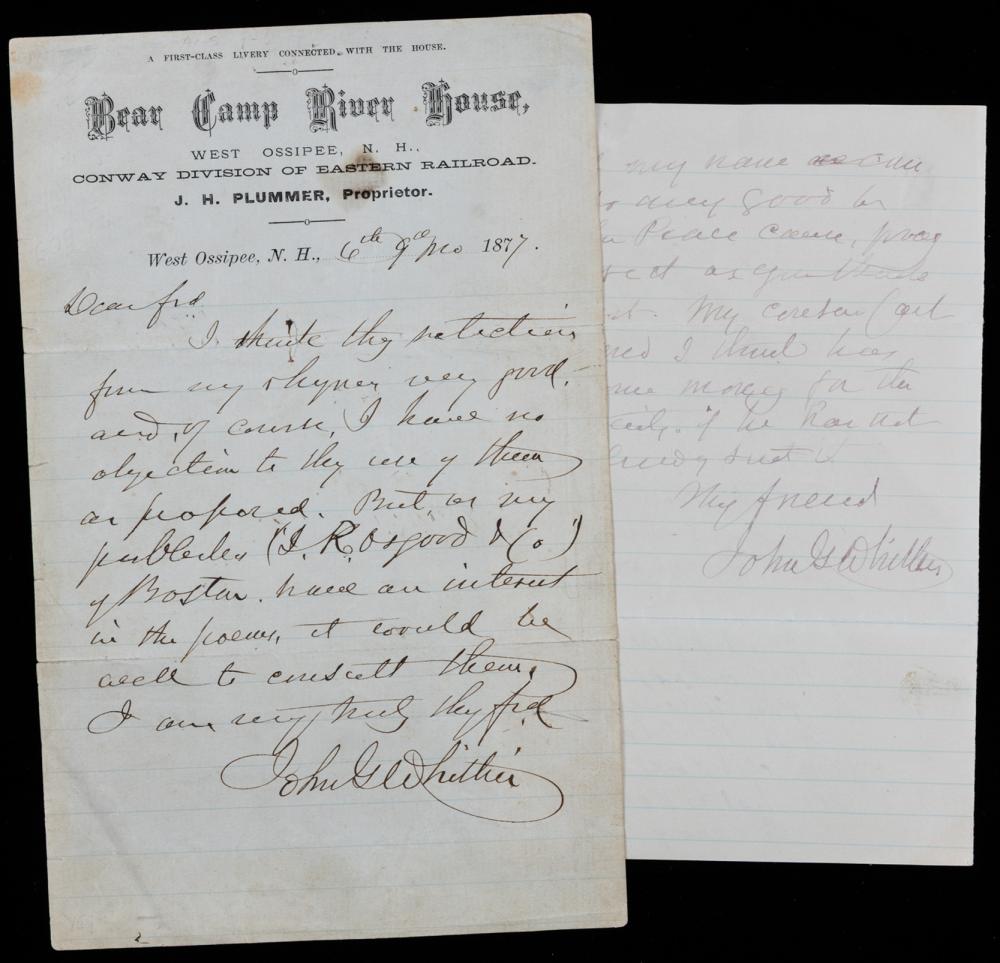 A FIRST-CLASS LIVERY CONNECTED WITH THE HOUSE.
Bear Camp River House,
WEST OSSIPEE, N. H.,
CONWAY DIVISION OF EASTERN RAILROAD.
J. H. PLUMMER, Proprietor.
West Ossipee, N. H., 6th 9th mo 1877.
Dear frd
I think thy selections
from my rhymes very good,
and, of course, I have no
objection to thy use of them
as proposed. But, as my
publishers ("J. R. Osgood & Co")
of Boston, have an interest
in the poems, it would be
well to consult them.
I am very truly thy frd
John G Whittier
my name
any good in
Peace cause,
as you think
My cousin
I think has
money for the
if he has not
sent it
Thy friend
John G Whittier